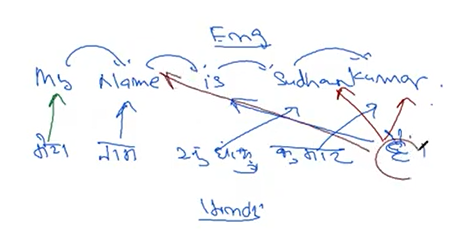 Eng
My Name is Sudhankumar.
मेरा नाम कुमार है।
Hindi